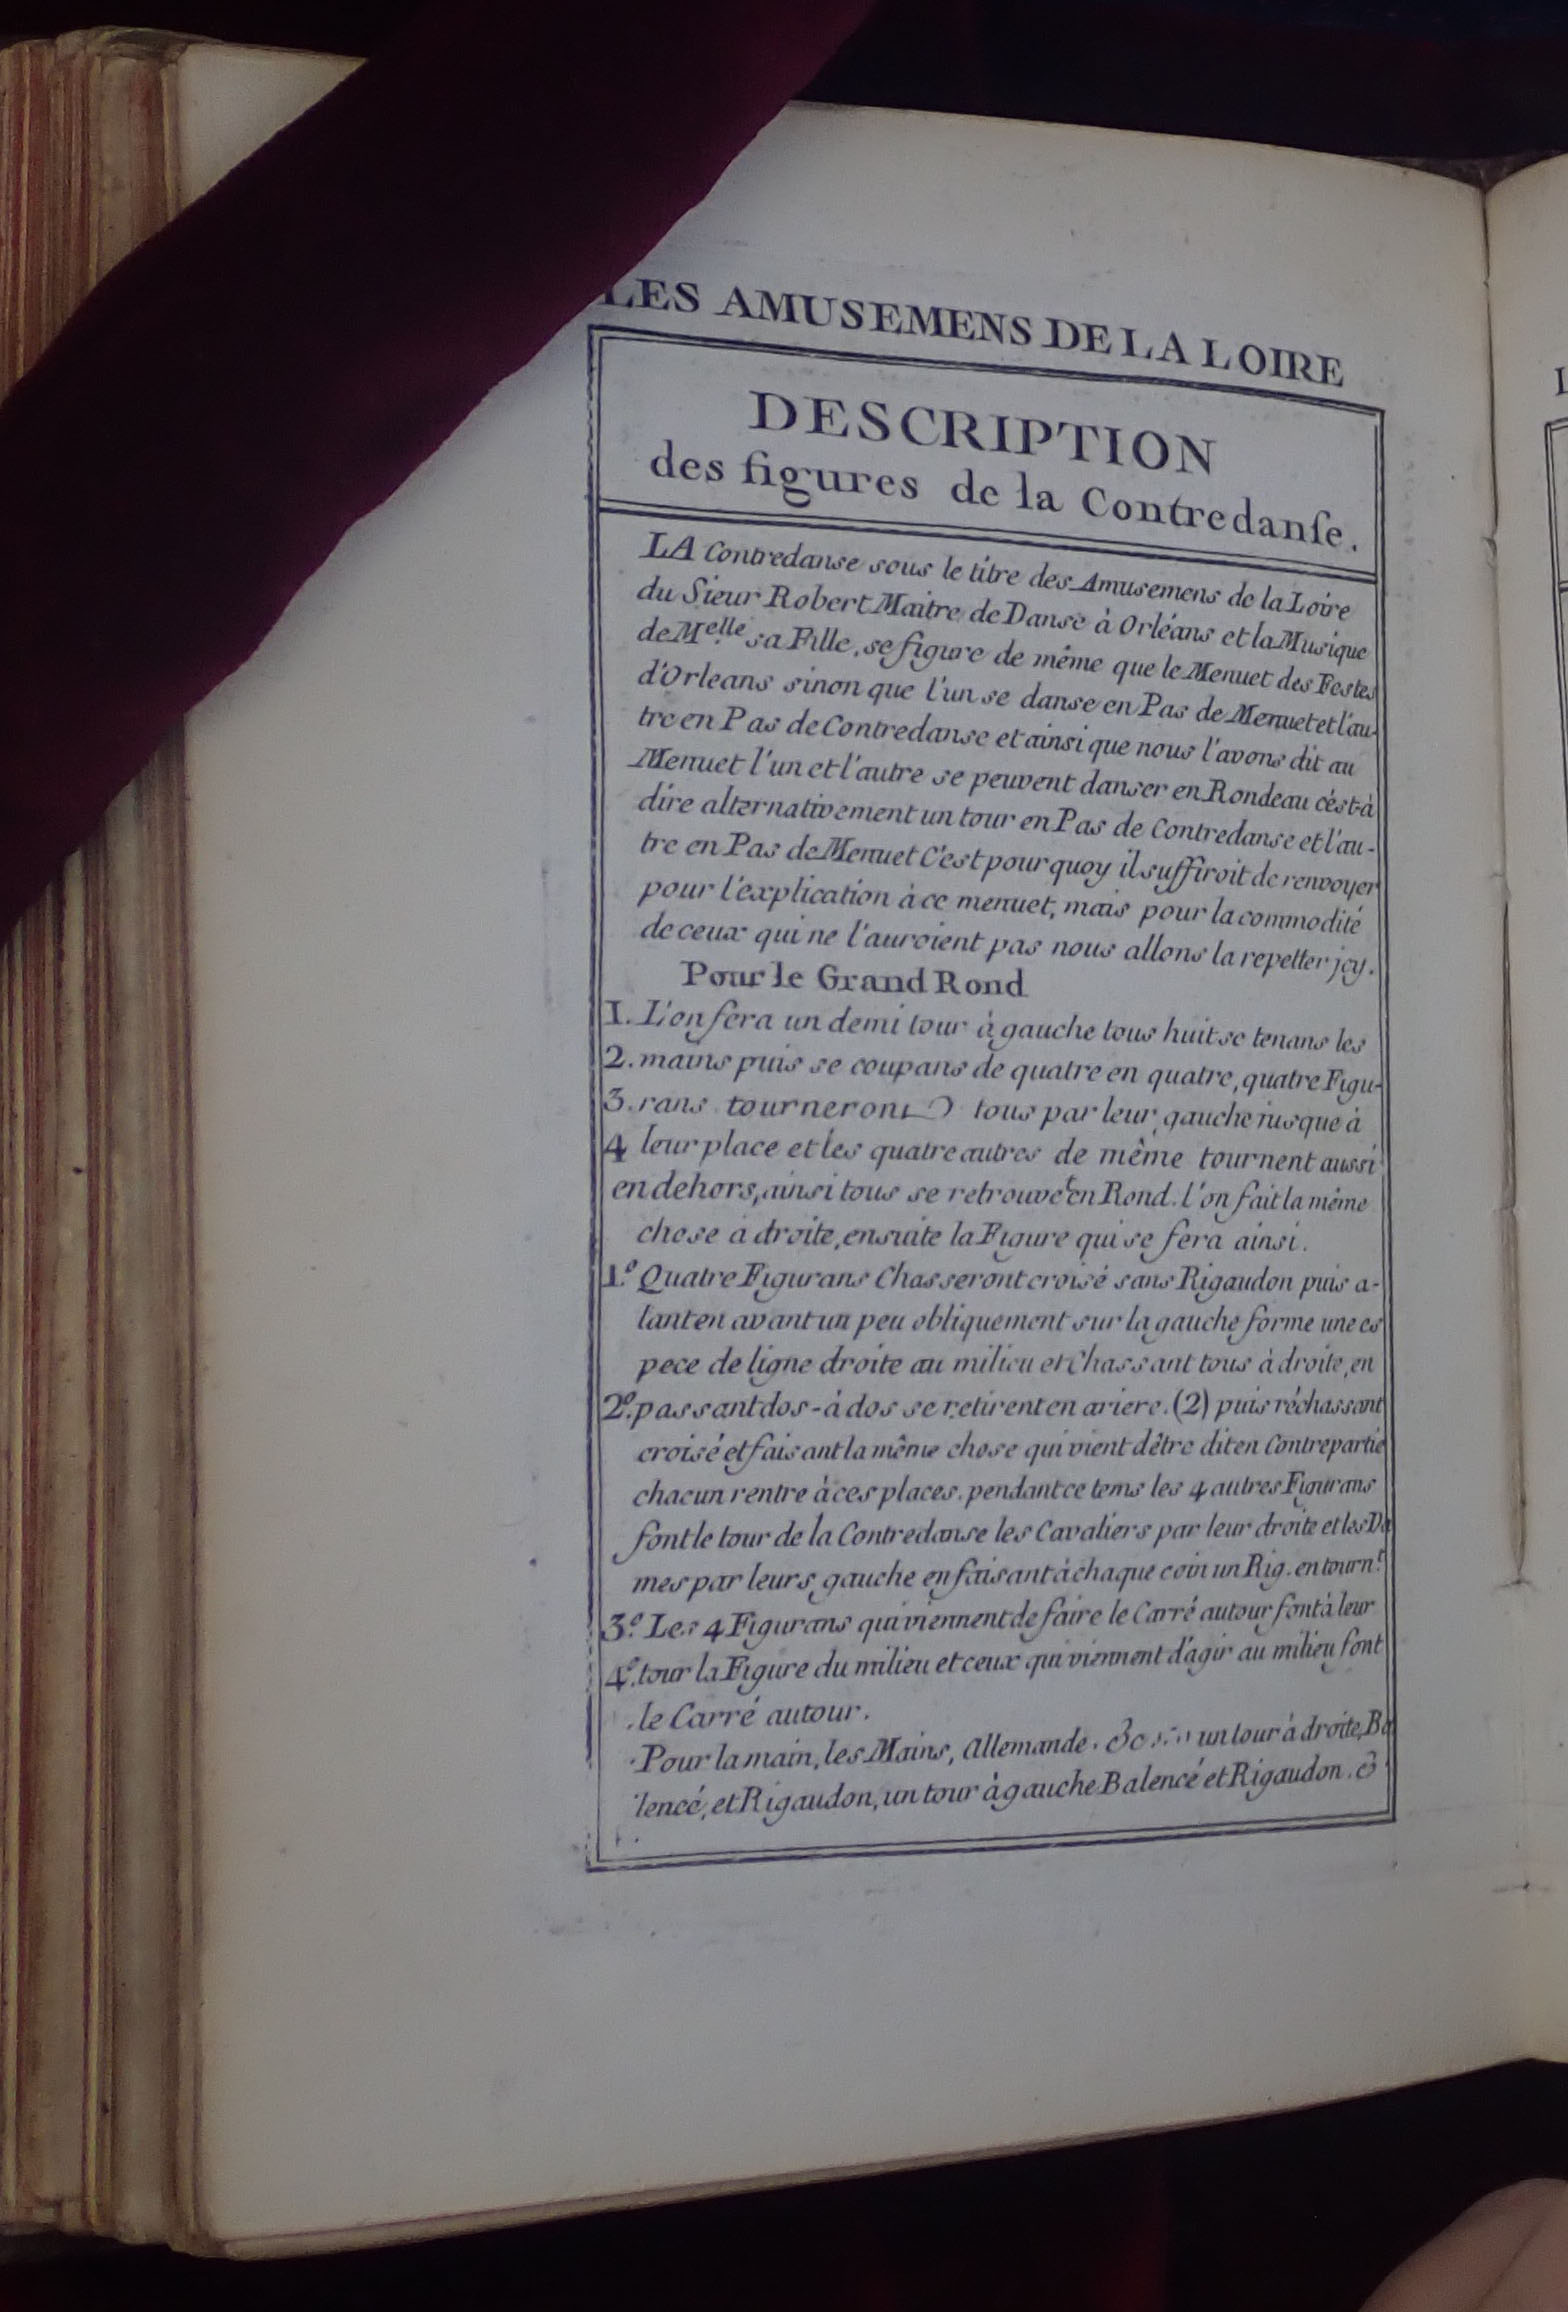 LES AMUSEMENS DE LA LOIRE
DESCRIPTION
des figures de la Contredanſe.
LA Contredanse sous le titre des Amusemens de la Loire
du Sieur Robert Maitre de Danse à Orléans et la Musique
de Melle sa Fille, se figure de même que le Menuet des Festes
d'Orleans sinon que l'un se danse en Pas de Menuet et l'au-
tre en Pas de Contredanse et ainsi que nous l'avons dit au
Menuet l'un et l'autre se peuvent danser en Rondeau c'est-à
dire alternativement un tour en Pas de Contredanse et l'au-
tre en Pas de Menuet C'est pour quoy il suffiroit de renvoyer
pour l'explication à ce menuet, mais pour la commodité
de ceux qui ne l'auroient pas nous allons la repetter jcy.
Pour le Grand Rond
1. L'on fera un demi tour à gauche tous huit se tenans les
2. mains puis se coupans de quatre en quatre, quatre Figu-
3. rans tourneront tous par leur gauche jusque à
4 leur place et les quatre autres de même tournent aussi
en dehors, ainsi tous se retrouvet en Rond. l'on fait la même
chose à droite, ensuite la Figure qui se fera ainsi.
1.º Quatre Figurans Chasseront croisé sans Rigaudon puis a-
lant en avant un peu obliquement sur la gauche forme une es
pece de ligne droite au milieu et Chassant tous à droite, en
2.º passant dos-à dos se retirent en ariere. (2) puis réchassant
croisé et faisant la même chose qui vient d'être dit en Contrepartie
chacun rentre à ces places. pendant ce tems les 4 autres Figurans
font le tour de la Contredanse les Cavaliers par leur droite et les Da
mes par leurs gauche en faisant à chaque coin un Rig. en tourn.t
3.º Les 4 Figurans qui viennent de faire le Carré autour font à leur
4.º tour la Figure du milieu et ceux qui viennent d'agir au milieu font
le Carré autour.
Pour la main, les Mains, Allemande. un tour à droite, Ba
lencé, et Rigaudon, un tour à gauche Balencé et Rigaudon.